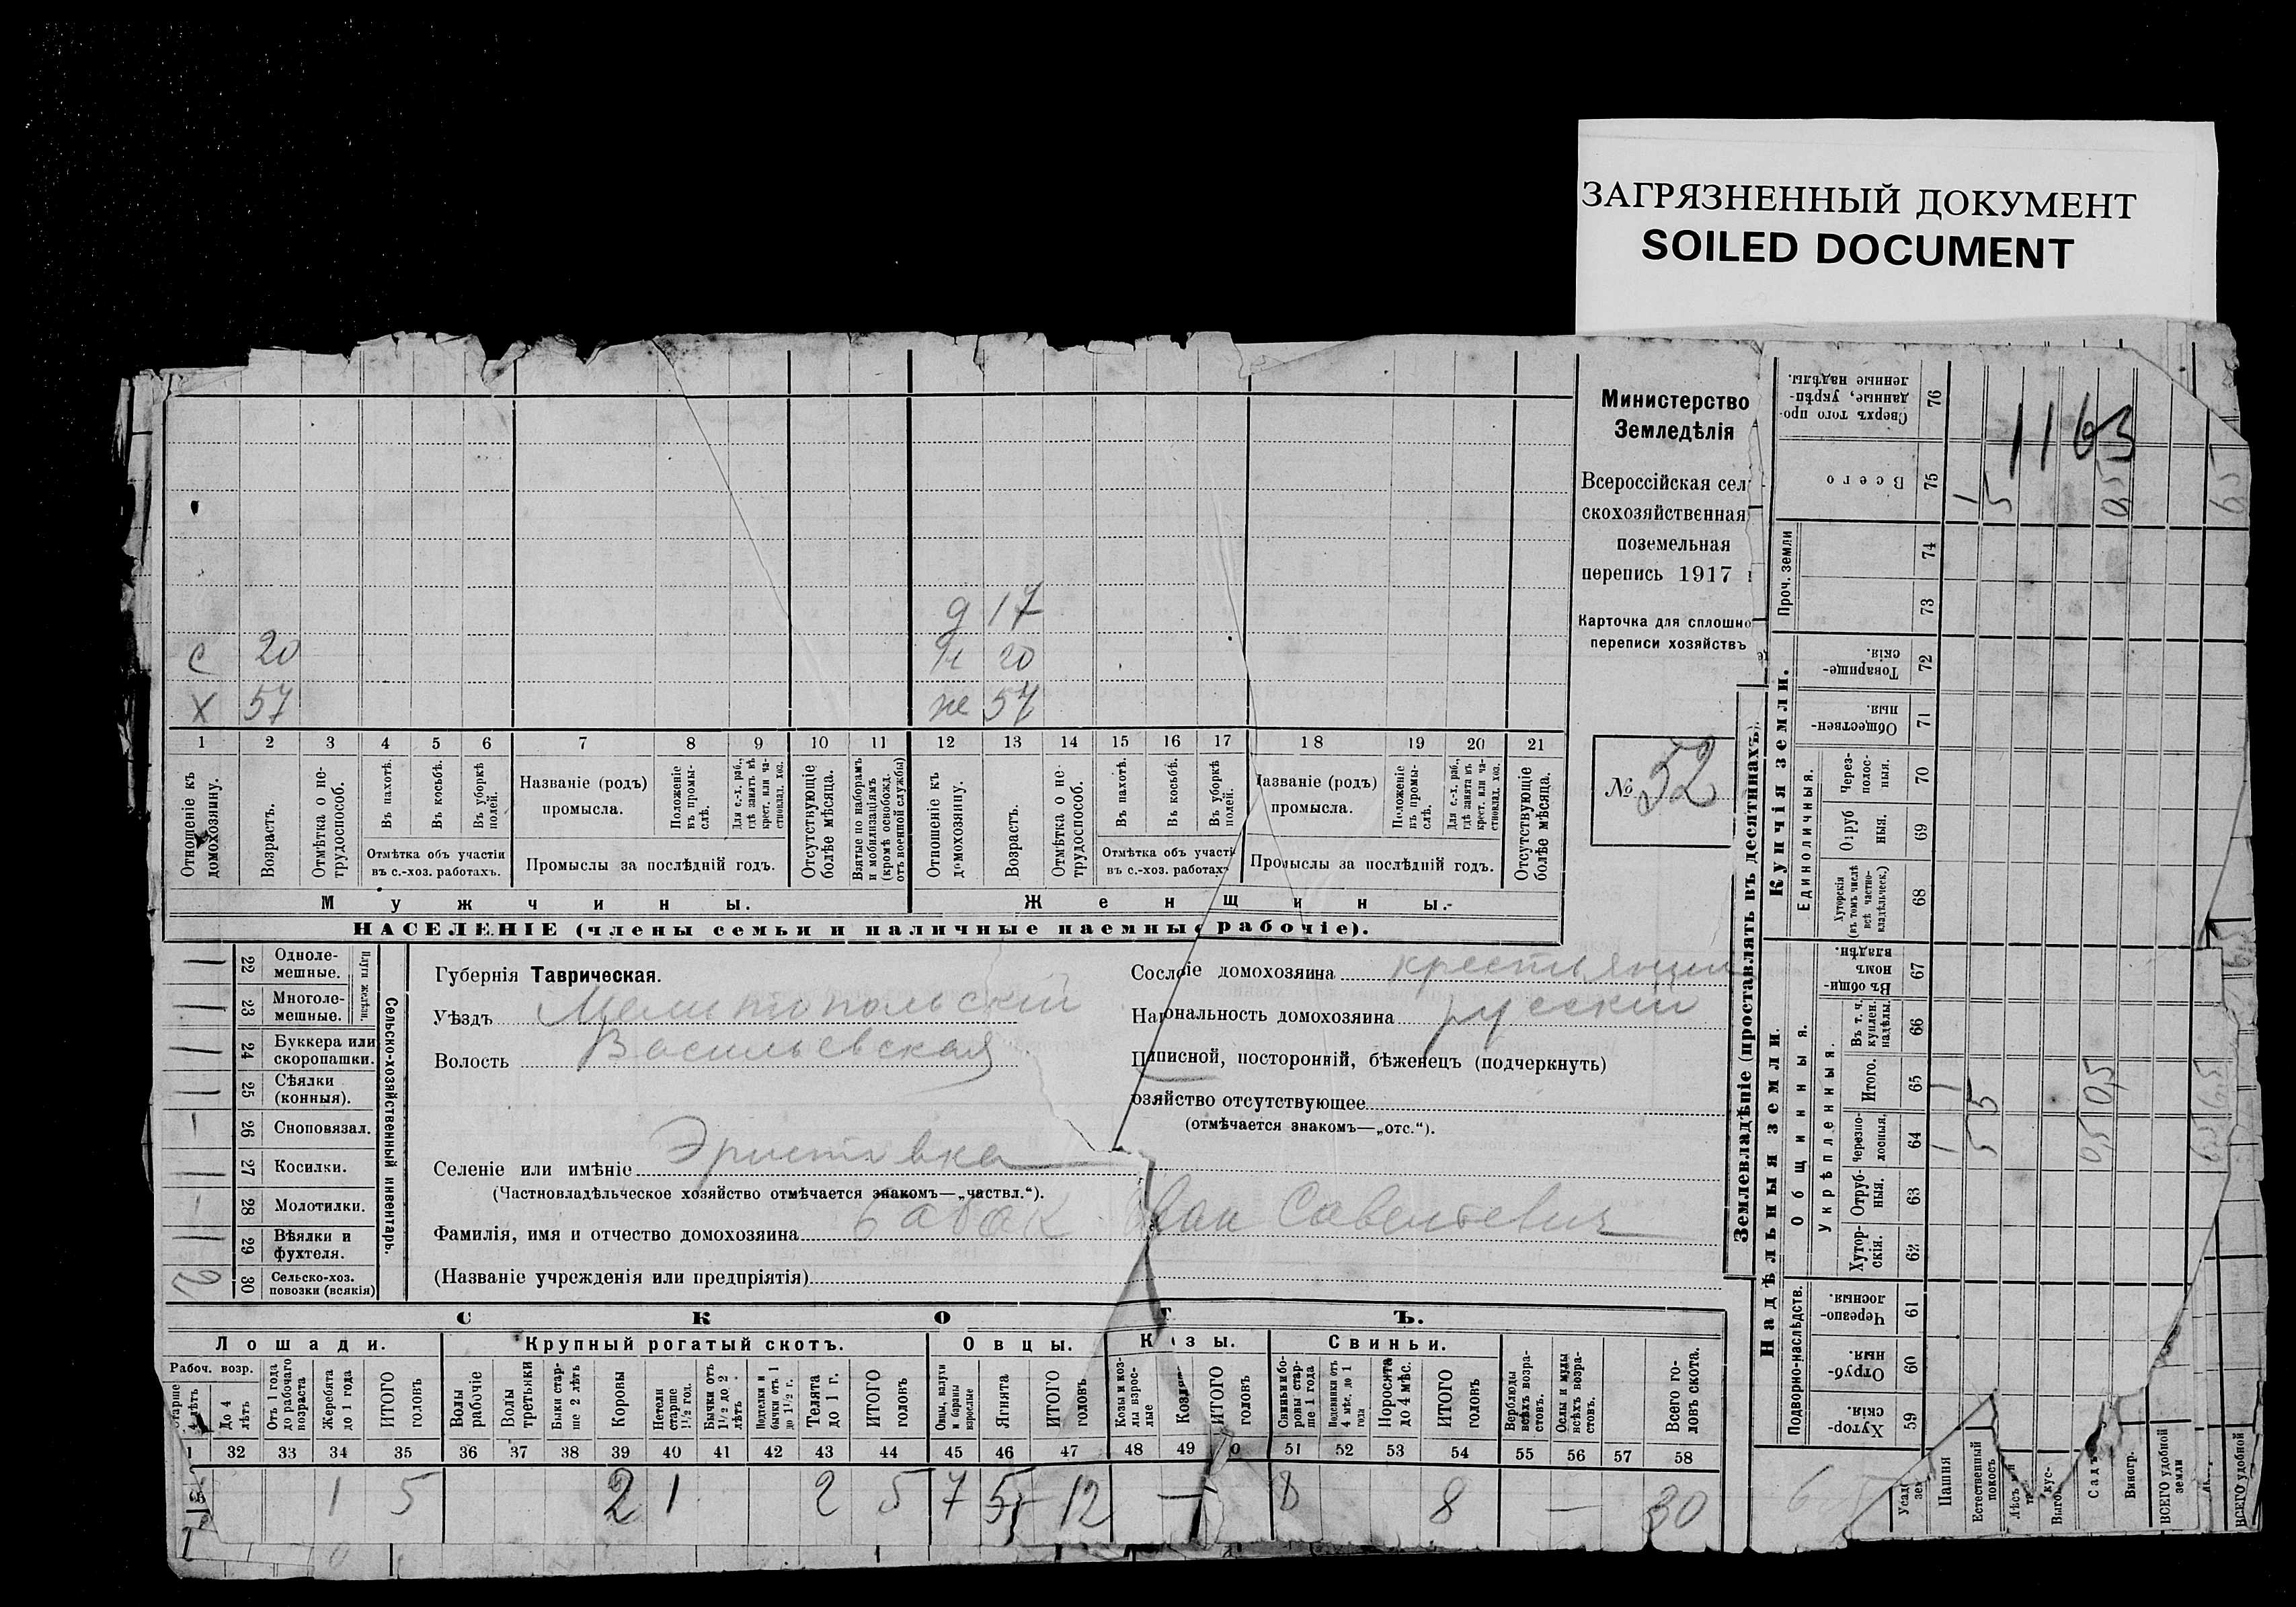 ЗАГРЯЗНЕННЫЙ ДОКУМЕНТ
SOILED DOCUMENT
Министерство
Земледѣлія
Всероссійская сел
скохозяйственная
поземельная
перепись 1917
Карточка для сплошно
переписи хозяйствъ
№ 52
д 17
с 20 20
х 57 же 57
1 2 3 4 5 6 7 8 9 10 11 12 13 14 15 16 17 18 19 20 21
Отношеніе къ домохозяину.
Возрастъ.
Отмѣтка о не-трудоспособ.
Въ пахотѣ.
Въ косьбѣ.
Въ уборкѣ полей.
Отмѣтка объ участіи
въ с.-хоз. работахъ.
Названіе (родъ)
промысла.
Положеніе въ промы-слѣ.
Для с.-х. раб., гдѣ занятъ въ крест. или ча-стновлад. хоз.
Промыслы за послѣдній годъ.
Отсутствующіе болѣе мѣсяца.
Взятые по наборамъ и мобилизаціямъ (кромѣ освобожд. отъ военной службы)
Отношеніе къ домохозяину.
Возрастъ.
Отмѣтка о не трудоспособ.
Въ пахотѣ.
Въ косьбѣ.
Въ уборкѣ полей.
Отмѣтка объ участі
въ с.-хоз. работах
Названіе (родъ)
промысла.
Положеніе въ промы-слѣ.
Для с.-х. раб., гдѣ занята въ крест. или ча-стновлад. хоз.
Промыслы за послѣдній годъ.
Отсутствующіе болѣе мѣсяца.
Мужчины. Женщины.-
НАСЕЛЕНІЕ (члены семьи и наличные наемные рабочіе).
22 Одноле-мешные.
23 Многоле-мешные.
Плуги желѣзн.
24 Буккера или скоропашки.
25 Сѣялки (конныя).
26 Сноповязал.
27 Косилки.
28 Молотилки.
29 Вѣялки и фухтеля.
30 Сельско-хоз. повозки (всякія)
Сельско-хозяйственный инвентарь.
Губернія Таврическая.
Уѣздъ Мелитопольскій
Волость Васильевская
Селеніе или имѣніе Эристовка
(Частновладѣльческое хозяйство отмѣчается знакомъ—„частвл.“).
Фамилія, имя и отчество домохозяина Бабак Иван Савельевич
(Названіе учрежденія или предпріятія)
Сословіе домохозяина крестьянин
Національность домохозяина русскій
Приписной, посторонній, бѣженецъ (подчеркнуть)
озяйство отсутствующее
(отмѣчается знакомъ—„отс.“).
СКОТЪ.
Лошади. Крупный рогатый скотъ. Овцы. Козы. Свиньи.
Рабоч. возр.
старше 4 лѣтъ
До 4 лѣтъ
Отъ 1 года до рабочаго возраста
Жеребята до 1 года
ИТОГО головъ
Волы рабочіе
Волы третьяки
Быки стар-ше 2 лѣтъ
Коровы
Нетели старше 1½ год.
Бычки отъ 1½ до 2 лѣтъ
Подтелки и бычки отъ 1 до 1½ г.
Телята до 1 г.
ИТОГО головъ
Овцы, валухи и бараны взрослые
Ягнята
ИТОГО головъ
Козы и коз-лы взрос-лые
Козля
ИТОГО головъ
Свиньи и бо-ровы стар-ше 1 года
Подсвинки отъ 4 мѣс. до 1 года
Поросята до 4 мѣс.
ИТОГО головъ
Верблюды всѣхъ возра-стовъ.
Ослы и мулы всѣхъ возра-стовъ.
Всего го-ловъ скота.
1 32 33 34 35 36 37 38 39 40 41 42 43 44 45 46 47 48 49 0 51 52 53 54 55 56 57 58
1 5 2 1 2 5 7 5 12 — 8 8 — 30
Землевладѣніе (проставлять въ десятинахъ).
Надѣльныя земли. Купчія земли.
Подворно-наслѣдств.
Общинныя.
Укрѣпленныя.
Единоличныя.
Проч. земли
59 Хутор-скія.
60 Отруб-ныя.
61 Черезпо-лосныя.
62 Хутор-скія.
63 Отруб-ныя.
64 Черезпо-лосныя.
65 Итого.
66 Въ т. ч. куплен. надѣлы.
67 Въ общи-номъ владѣн.
68 Хуторскія (въ томъ числѣ всѣ частно-владѣльческ.)
69 Отруб ныя.
70 Через-полос-ныя.
71 Обществен-ныя.
72 Товарище-скія.
73
74
75 Всего
76 Сверхъ того про-данные, укрѣп-ленные надѣлы.
1163
1 5 0,5 6,5
1 5 0,5 6,5
1 5 0,5 6,5
Усад зем
Пашня
Естественный покосъ
Лѣсъ
Выгон кус-
Садъ
Виногр.
ВСЕГО удобной земли
ВСЕГО удобной